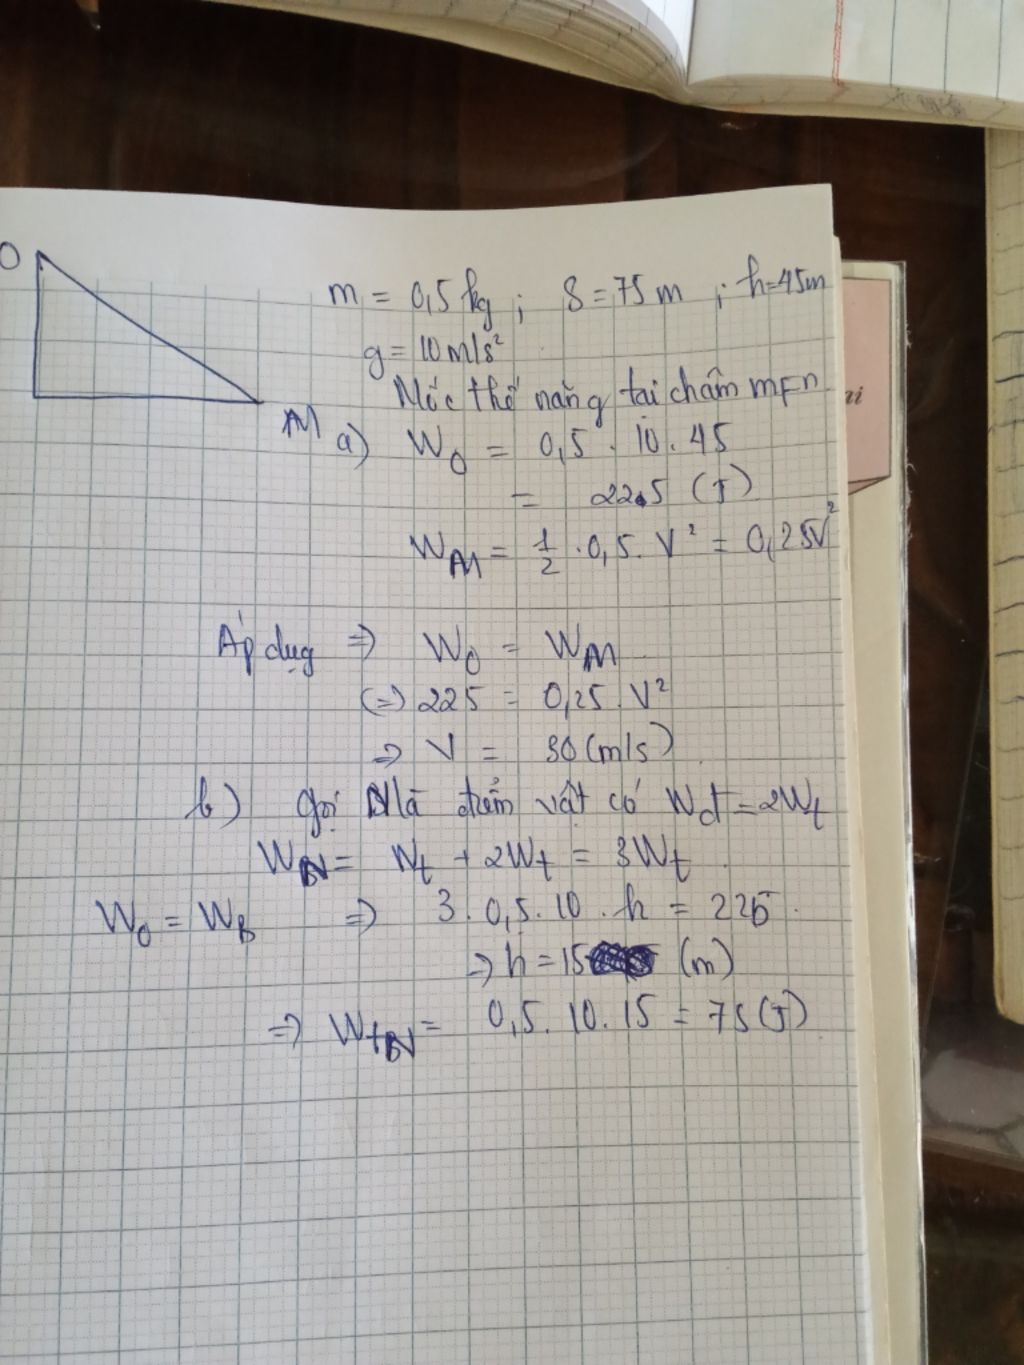 O
m = 0,5 kg ; S = 75 m ; h=45m
g = 10 m/s²
Mốc thế năng tại chân mFn
M
a) W₀ = 0,5 . 10 . 45
= 225 (J)
W_M = 1/2 . 0,5 . V² = 0,25V²
Áp dụg ⇒ W₀ = W_M
(⇒) 225 = 0,25 . V²
⇒ V = 30 (m/s)
b) Gọi N là điểm vật có Wđ = 2Wt
W_N = Wt + 2Wt = 3Wt
W₀ = W_B ⇒ 3. 0,5. 10 . h = 225
⇒ h = 15 (m)
⇒ W_tN = 0,5. 10. 15 = 75 (J)